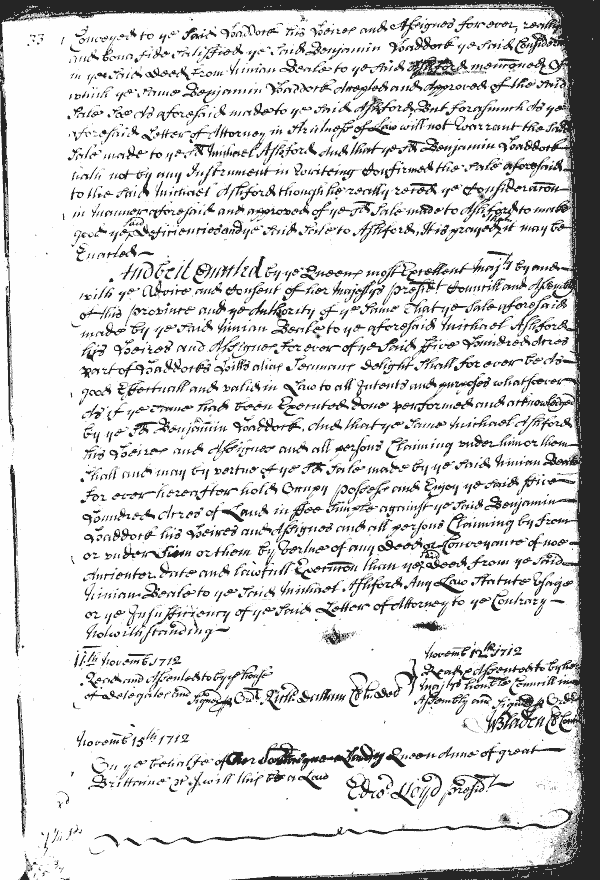 33
Conveyed to ye Said Haddock his Heires and Assignes for ever, really
and bona fide Satisfied ye Said Benjamin Haddock ye Said
in ye Said Deed from Ninian Beale to ye Said Ashford menconed
which ye Same Benjamin Haddock Accepted and Approved of the Said
Sale Soe As aforesaid made to ye Said Ashford, But forasmuch As ye
aforesaid Letter of Attorney in Strictness of Law will not Warrant the Said
Sale made to ye Sd Michael Ashford And that ye Sd Benjamin Haddock
hath not by any Instrument in Writeing Confirmed the Sale aforesaid
to the Said Michael Ashford though he really reced ye Consideracon
in manner aforesaid and approved of ye Sd Sale made to Ashford to make
good ye Said Deficiencies and ye Said Sale to Ashford, It is prayed yt it may be
Enacted
And be it Enacted by ye Queens most Excellent Majty by and
with ye Advice and Consent of her Majestys present Councill and Assembly
of this province and ye Authority of ye Same That ye Sale aforesaid
made by ye Said Ninian Beale to ye aforesaid Michael Ashford
his Heires and Assignes for ever of ye Said ffive Hundred Acres
part of Haddocks Hills alias delight Shall for ever be As
good Effectuall and valid in Law to all Intents and purposes whatsoever
As if ye Same had been Executed Done performed and acknowledged
by ye Sd Benjamin Haddock. And that ye Same Michael Ashford
his Heires and Assignes and all persons Claiming under him or them
Shall and may by vertue of ye Sd Sale made by ye Said Ninian Beale
for ever hereafter hold Occupy possess and Enjoy ye Said ffive
Hundred Acres of Land in ffee Simple against ye Said Benjamin
Haddock his Heires and Assignes and all persons Claiming by from
or under him or them by vertue of any Deed or Conveyance of noe
Ancienter date and lawfull Execucon than ye Said Deed from ye Said
Ninian Beale to ye Said Michael Ashford Any Law Statute Usage
or ye Insufficiency of ye Said Letter of Attorney to ye Contrary
Notwithstanding
11th Novemb 1712
Read and Assented to by ye house
of Delegates and Signed p Ord. Richd Dallam Cl ho Del
Novemb 12th 1712
Read & Assented to by her
majtys honble Councill in
Assembly and Signed p Order
W Bladen Cl Coun
Novemb 15th 1712
On ye behalfe of Her Queen Anne of great
Brittaine &c I will this be a Law
Edwd Lloyd presidt